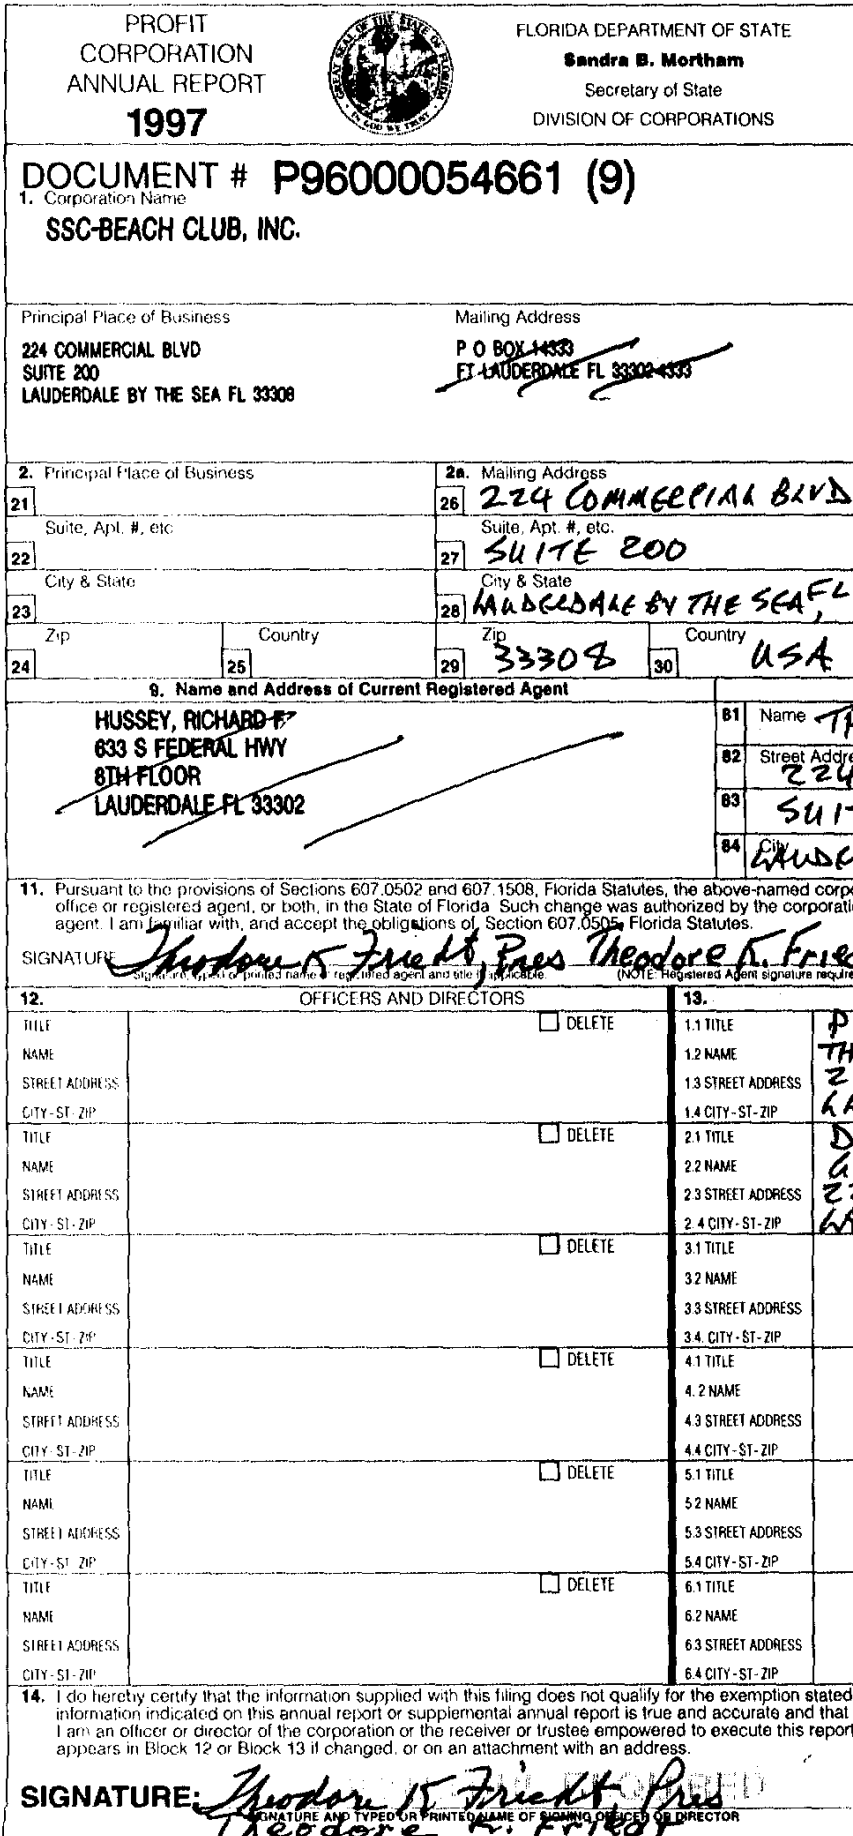 PROFIT
CORPORATION
ANNUAL REPORT
1997
GREAT SEAL OF THE STATE OF FLORIDA
IN GOD WE TRUST
FLORIDA DEPARTMENT OF STATE
Sandra B. Mortham
Secretary of State
DIVISION OF CORPORATIONS
DOCUMENT # P96000054661 (9)
1. Corporation Name
SSC-BEACH CLUB, INC.
Principal Place of Business
224 COMMERCIAL BLVD
SUITE 200
LAUDERDALE BY THE SEA FL 33308
Mailing Address
P O BOX 14333
FT LAUDERDALE FL 33302-4333
2. Principal Place of Business
21
Suite, Apt. #, etc
22
City & State
23
Zip
24
Country
25
2a. Mailing Address
26 224 COMMERCIAL BLVD
Suite, Apt. #, etc.
27 SUITE 200
City & State
28 LAUDERDALE BY THE SEA, FL
Zip
29 33308
Country
30 USA
9. Name and Address of Current Registered Agent
HUSSEY, RICHARD F
633 S FEDERAL HWY
8TH FLOOR
LAUDERDALE FL 33302
81 Name TH
82 Street Addre
224
83 SUIT
84 City
LAUDE
11. Pursuant to the provisions of Sections 607.0502 and 607.1508, Florida Statutes, the above-named corpo
office or registered agent, or both, in the State of Florida Such change was authorized by the corporati
agent. I am familiar with, and accept the obligations of, Section 607.0505, Florida Statutes.
SIGNATURE Theodore K Friedt, Pres Theodore K. Fried
Signature, typed or printed name of registered agent and title if applicable. (NOTE: Registered Agent signature require
12. OFFICERS AND DIRECTORS 13.
TITLE DELETE 1.1 TITLE P
NAME 1.2 NAME TH
STREET ADDRESS 1.3 STREET ADDRESS 2
CITY-ST-ZIP 1.4 CITY-ST-ZIP LA
TITLE DELETE 2.1 TITLE D
NAME 2.2 NAME G
STREET ADDRESS 2.3 STREET ADDRESS 22
CITY-ST-ZIP 2.4 CITY-ST-ZIP LA
TITLE DELETE 3.1 TITLE
NAME 3.2 NAME
STREET ADDRESS 3.3 STREET ADDRESS
CITY-ST-ZIP 3.4. CITY-ST-ZIP
TITLE DELETE 4.1 TITLE
NAME 4.2 NAME
STREET ADDRESS 4.3 STREET ADDRESS
CITY-ST-ZIP 4.4 CITY-ST-ZIP
TITLE DELETE 5.1 TITLE
NAME 5.2 NAME
STREET ADDRESS 5.3 STREET ADDRESS
CITY-ST-ZIP 5.4 CITY-ST-ZIP
TITLE DELETE 6.1 TITLE
NAME 6.2 NAME
STREET ADDRESS 6.3 STREET ADDRESS
CITY-ST-ZIP 6.4 CITY-ST-ZIP
14. I do hereby certify that the information supplied with this filing does not qualify for the exemption stated
information indicated on this annual report or supplemental annual report is true and accurate and that
I am an officer or director of the corporation or the receiver or trustee empowered to execute this report
appears in Block 12 or Block 13 if changed, or on an attachment with an address.
SIGNATURE: Theodore K Friedt, Pres
SIGNATURE AND TYPED OR PRINTED NAME OF SIGNING OFFICER OR DIRECTOR
Theodore K. Friedt